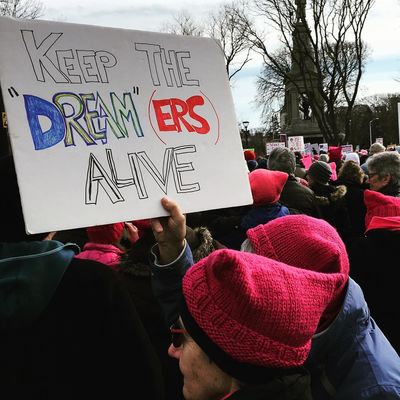 KEEP THE
"DREAM" (ERS)
ALIVE